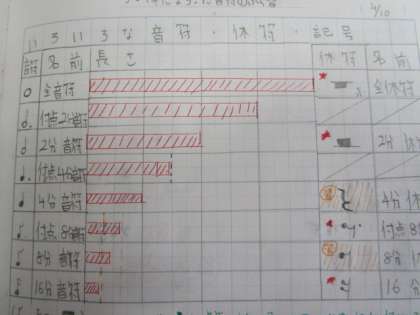 いろいろな音符・休符・記号
音符 名前 長さ 休符 名前
全音符 全休符
付点2分音符
2分音符 2分休
付点4分音符
4分音符 4分休
付点8分音符 付点8
8分音符 8分
16分音符 16分